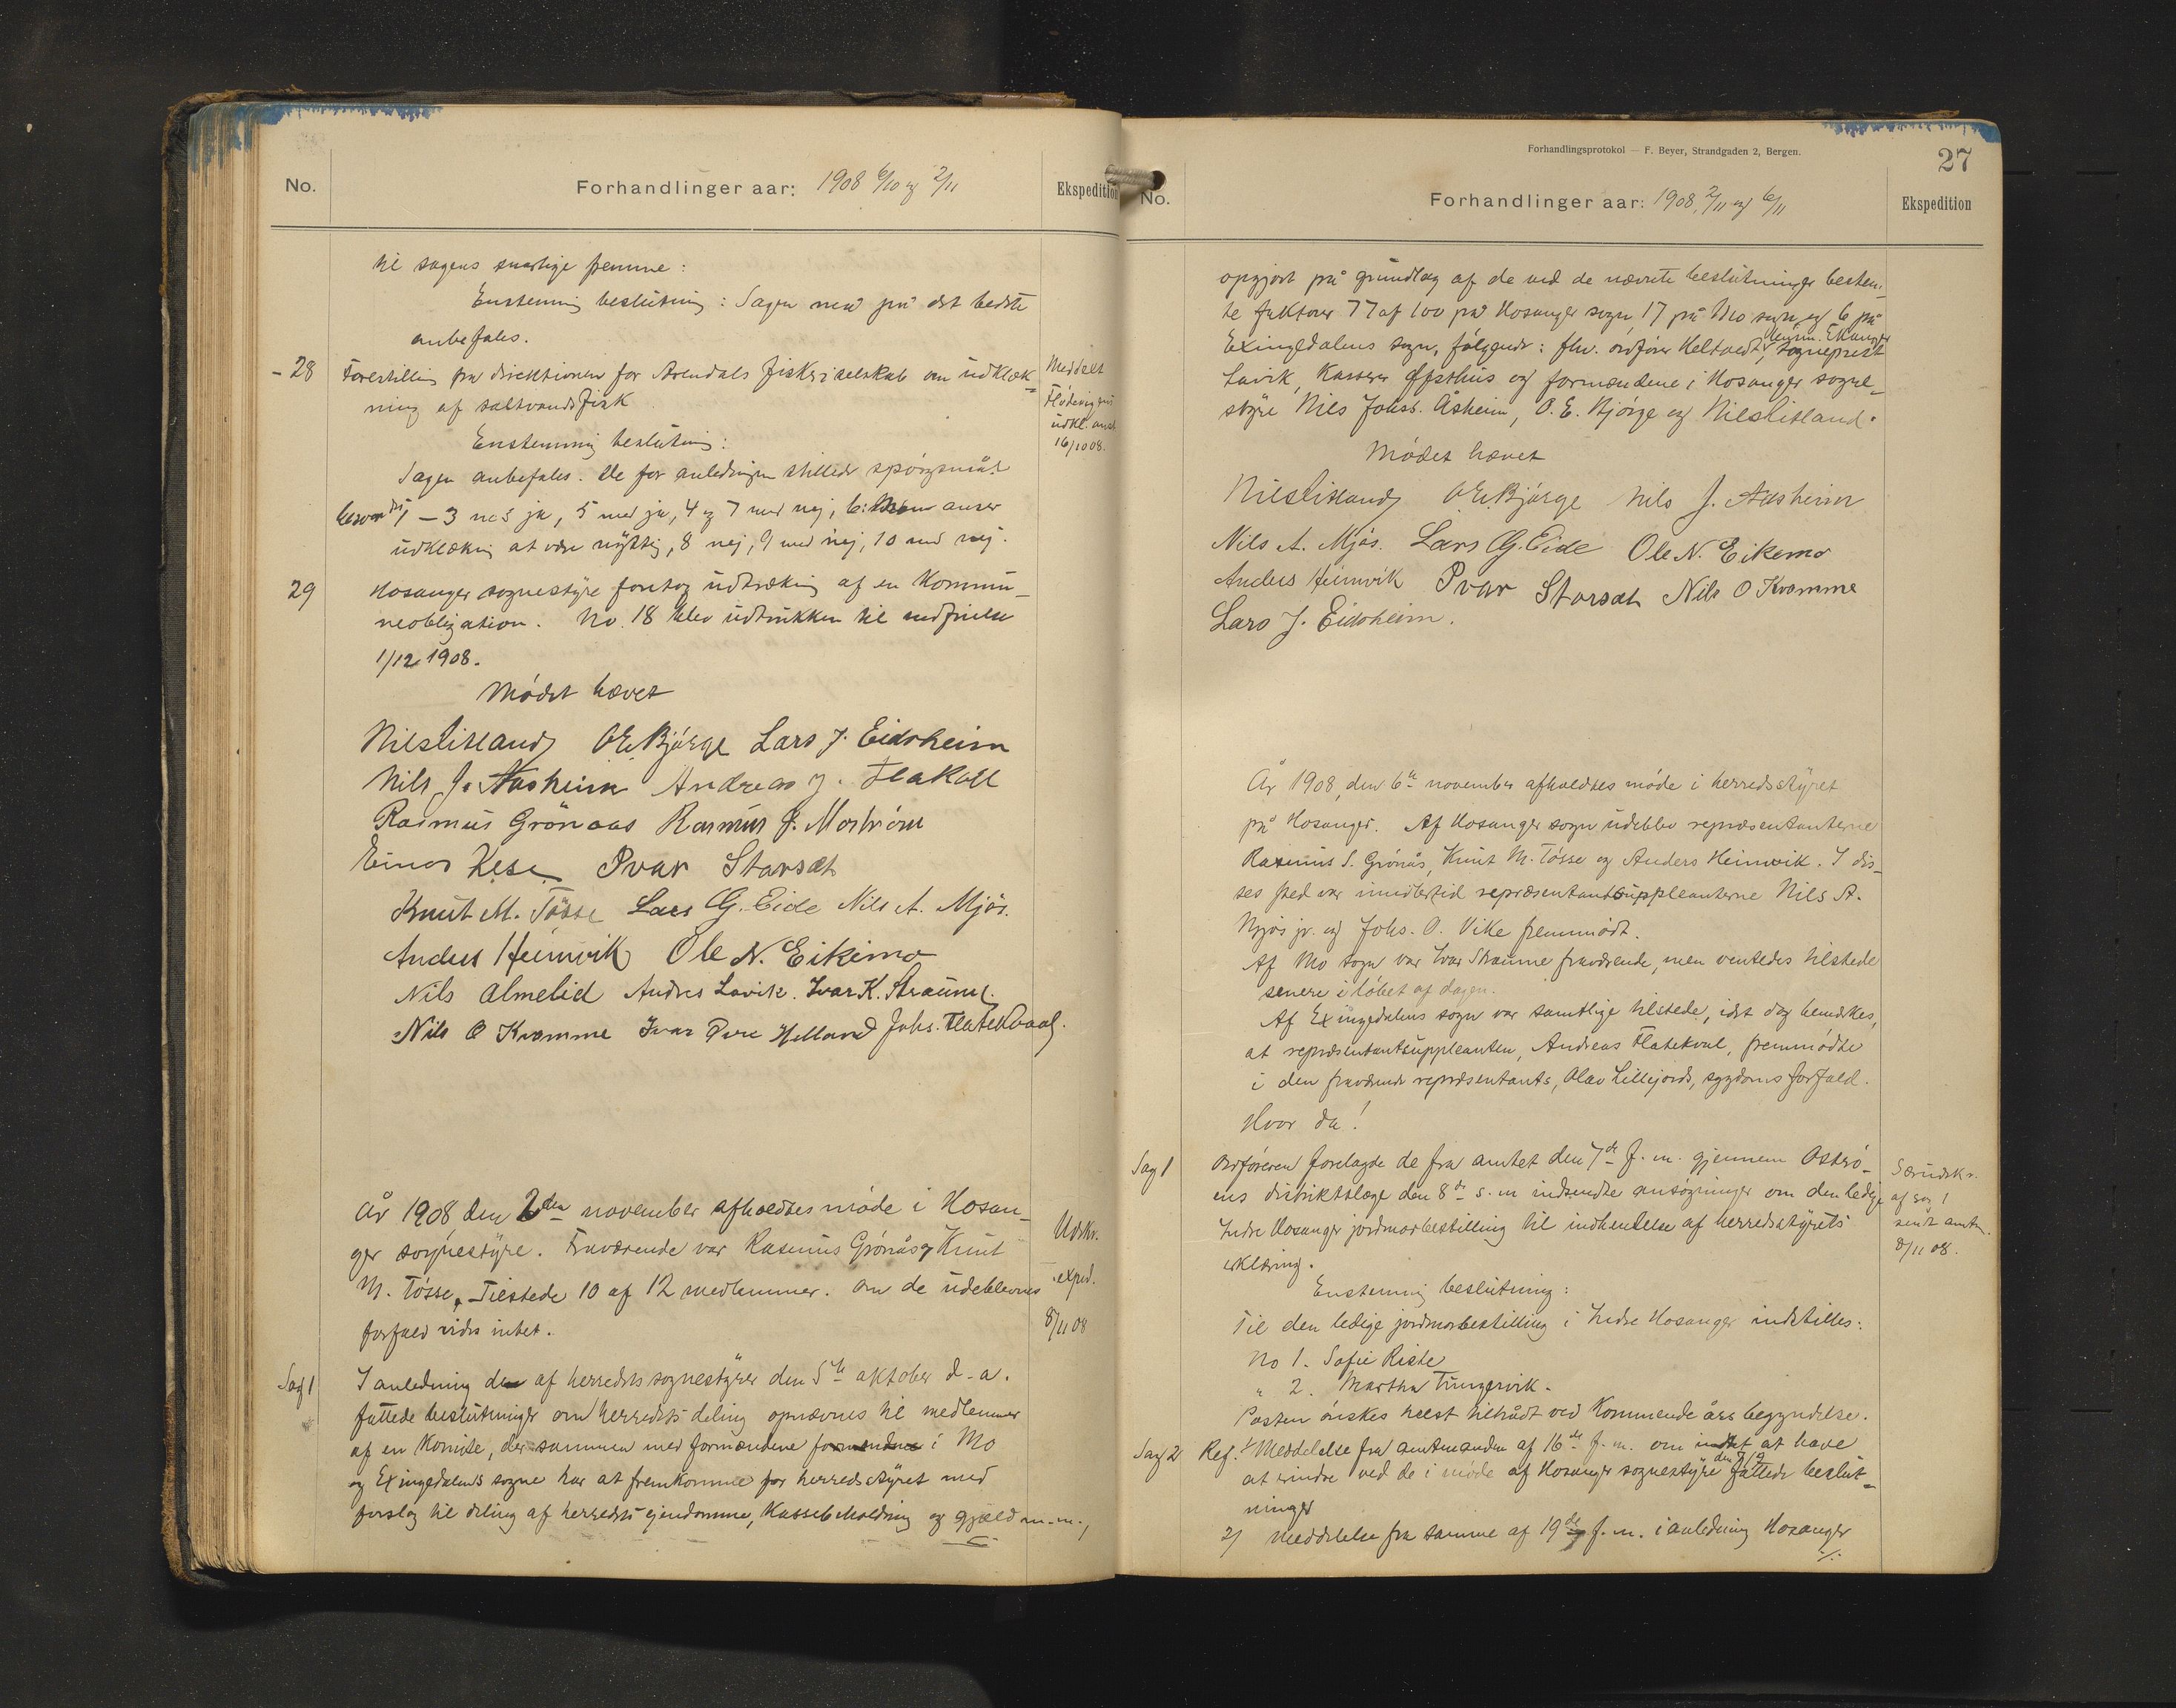 No.
Forhandlinger aar: 1908 6/10 og 2/11
Ekspedition
til sagens snarlige fremme:
Enstemmig beslutning: Sagen med på det bedste
anbefales.
- 28 Forestilling fra direktionen for Arendals fiskeriselskab om udklæk-
ning af saltvandsfisk
Enstemmig beslutning:
Sagen anbefales. De for anledningen stillede spörgsmål
1 - 3 med ja, 5 med ja, 4 og 7 med nej, 6: anser
udklækning at være nyttig, 8 nej, 9 med nej, 10 med nej.
Meddelt
Flödevigens
udkl. anst.
16/10 08.
29 Hosanger sognestyre foretog udtrækning af en kommu-
neobligation. No. 18 blev udtrukken til indfrielse
1/12 1908.
Mödet hævet
Nils Litland O. E. Bjørge Lars J. Eidsheim
Nils J. Aasheim Andreas J. Flakoll
Rasmus Grönaas Rasmus J.
Einar Kese Ivar Storsæt
Knut M. Tösse Lars G. Eide Nils A. Mjös.
Anders Heimvik Ole N. Eikemo
Nils Almelid Andres Lavik. Ivar K. Straume.
Nils O Kvamme Ivar Helland Johs. Flatekvaal.
År 1908 den 2den november afholdtes möde i Hosan-
ger sognestyre. Fraværende var Rasmus Grönås og Knut
M. Tösse. Tilstede 10 af 12 medlemmer. Om de udeblevnes
forfald vides intet.
Udskr.
exped.
8/11 08
Sag 1 I anledning de af herredets sognestyrer den 5te oktober d. a.
fattede beslutninger om herredets deling opnævnes til medlemmer
af en komite, der sammen med formændene i Mo
og Exingedalens sogne har at fremkomme for herredsstyret med
forslag til deling af herredets eiendomme, kassebeholdning og gjæld m. m.,
Forhandlingsprotokol — F. Beyer, Strandgaden 2, Bergen.
27
No.
Forhandlinger aar: 1908, 2/11 og 6/11
Ekspedition
opgjort på grundlag af de ved de nævnte beslutninger bestem-
te faktorer 77 af 100 på Hosanger sogn, 17 på Mo sogn og 6 på
Exingedalens sogn, følgende: fhv. ordförer Heltvedt, sogneprest
Lavik, kasserer Offsthus og formændene i Hosanger sogne-
styre Nils Johss. Åsheim, O. E. Bjørge og Nils Litland.
Mödet hævet
Nils Litland O. E. Bjørge Nils J. Aasheim
Nils A. Mjös. Lars G. Eide Ole N. Eikemo
Anders Heimvik Ivar Storsæt Nils O Kvamme
Lars J. Eidsheim.
År 1908, den 6te november afholdtes möde i herredsstyret
på Hosanger. Af Hosanger sogn udeblev repræsentanterne
Rasmus S. Grönås, Knut M. Tösse og Anders Heimvik. I dis-
ses sted var imidlertid repræsentantsuppleanterne Nils A.
Mjös jr. og Johs. O. Vike fremmödt.
Af Mo sogn var Ivar Straume fraværende, men ventedes tilstede
senere i löbet af dagen.
Af Exingedalens sogn var samtlige tilstede, idet dog bemærkes,
at repræsentantsuppleanten, Andreas Flatekval, fremmödte
i den fraværende repræsentants, Olav Lillejords, sygdoms forfald.
Hvor da!
Sag 1 Ordföreren forelagde de fra amtet den 7de f. m. gjennem Osterö-
ens distriktslæge den 8de s. m. indsendte ansögninger om den ledige
Indre Hosanger jordmorbestilling til indhentelse af herredsstyrets
erklæring.
Særudskr.
af sag 1
sendt amtm.
8/11 08.
Enstemmig beslutning:
Til den ledige jordmorbestilling i Indre Hosanger indstilles:
No 1. Sofie Riste
" 2. Martha Tungervik.
Posten önskes helst tiltrådt ved kommende års begyndelse.
Sag 2 Ref. 1/ Meddelelse fra amtmanden af 16de f. m. om intet at have
at erindre ved de i möde af Hosanger sognestyre den fattede beslut-
ninger
2/ Meddelelse fra samme af 19de f. m. i anledning Hosanger
./.